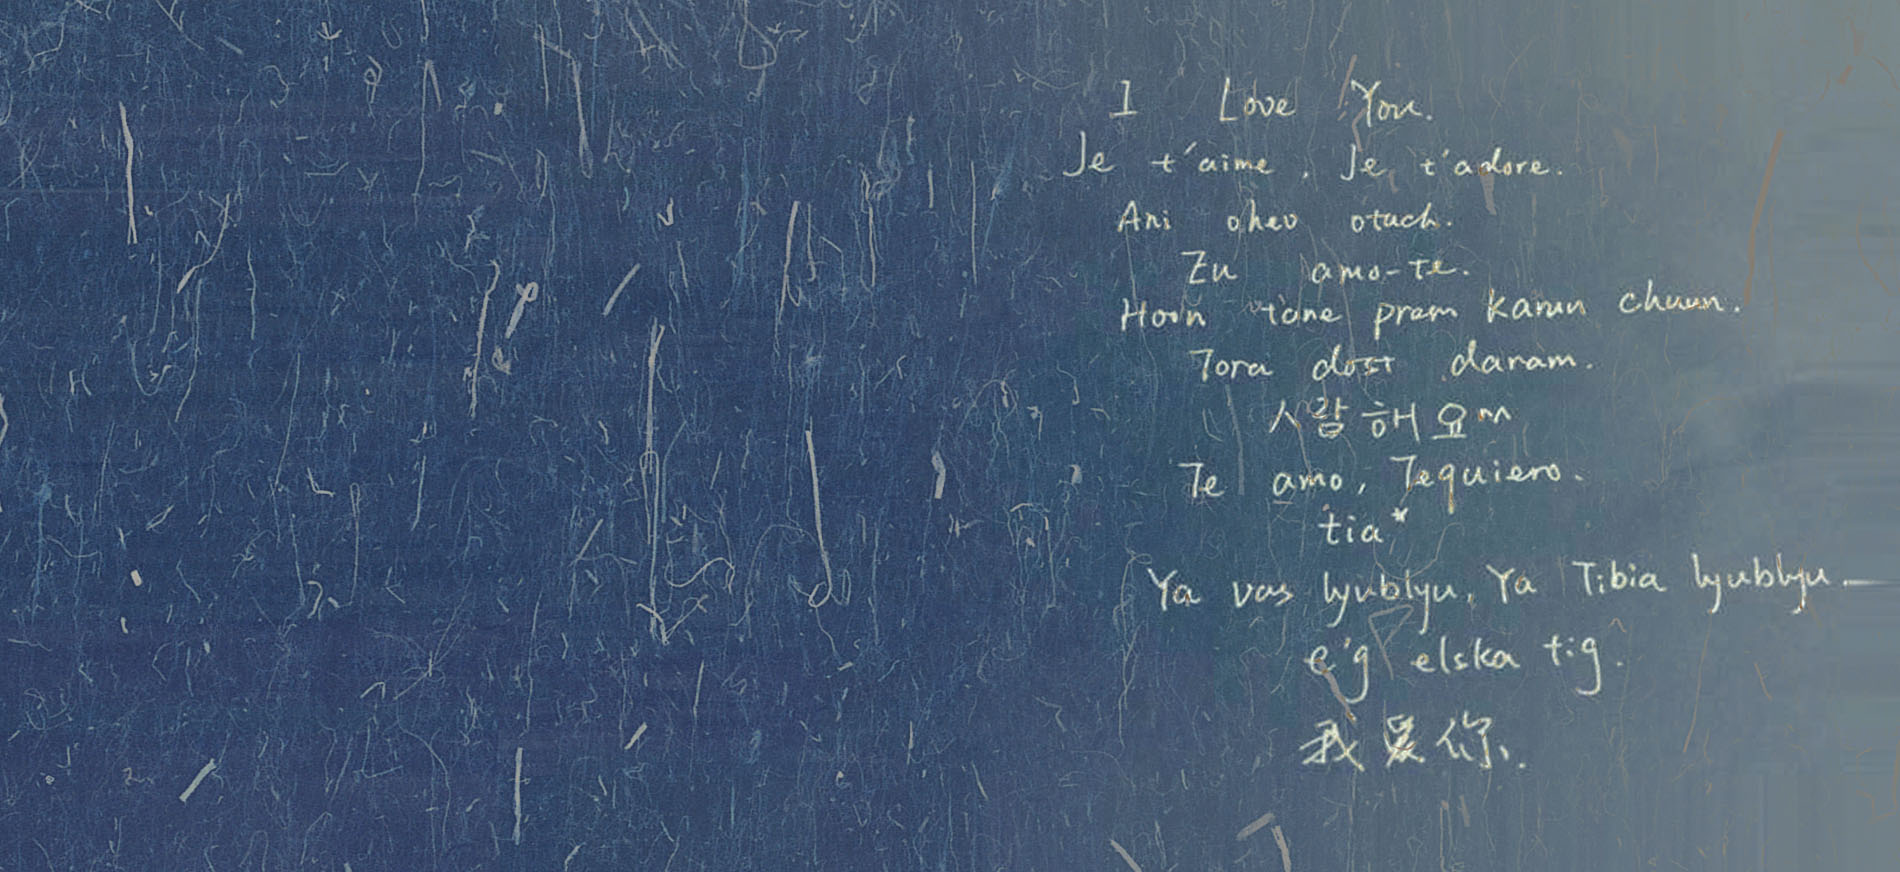 I Love You.
Je t'aime, Je t'adore.
Ani ohev otach.
Zu amo-te.
Hoon tane pram karun chuun.
Tora dost daram.
사랑해요^^
Te amo, Tequiero.
tia*
Ya vas lyublyu, Ya Tibia lyublyu.
e'g elska tig.
我爱你.